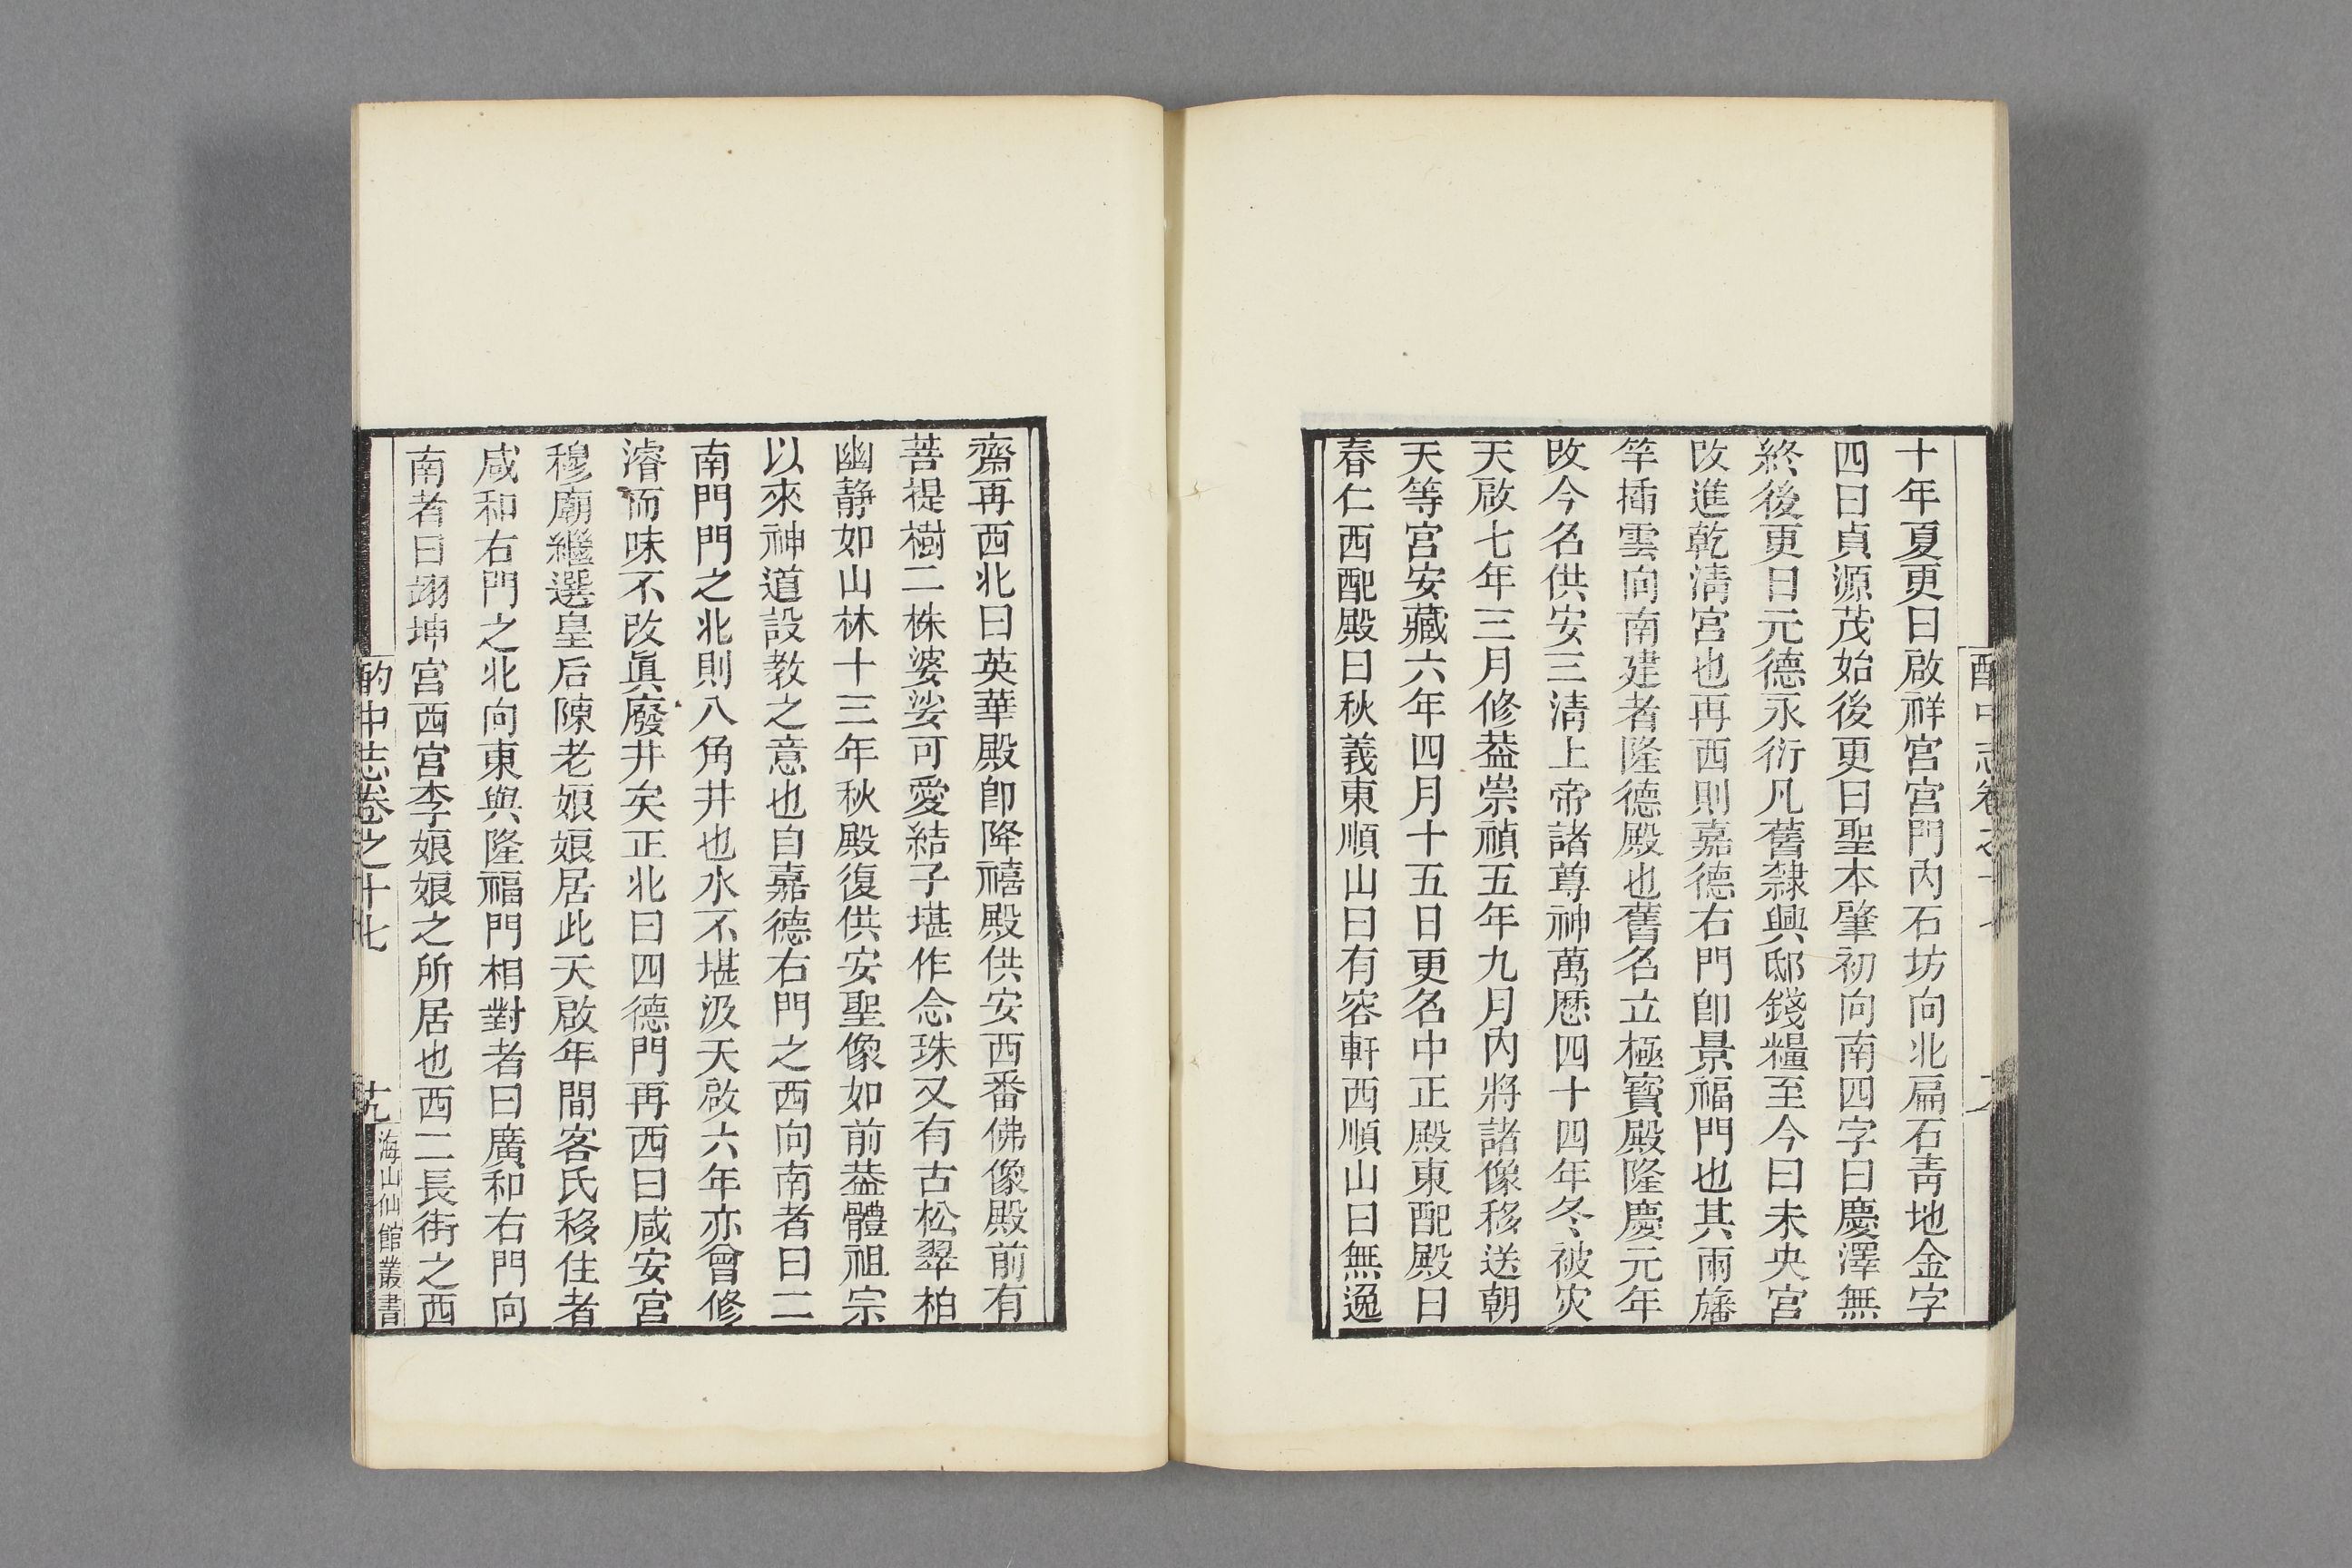 酌中志卷之十七
十年夏更曰啟祥宮宮門內石坊向北扁石靑地金字
四曰貞源茂始後更曰聖本肇初向南四字曰慶澤無
終後更曰元德永衍凡舊隸興邸錢糧至今曰未央宮
改進乾淸宮也再西則嘉德右門卽景福門也其兩旛
竿插雲向南建者隆德殿也舊名立極寶殿隆慶元年
改今名供安三淸上帝諸尊神萬厯四十四年冬被灾
天啟七年三月修葢崇禎五年九月內將諸像移送朝
天等宮安藏六年四月十五日更名中正殿東配殿曰
春仁西配殿曰秋義東順山曰有容軒西順山曰無逸
齋再西北曰英華殿卽降禧殿供安西番佛像殿前有
菩提樹二株婆娑可愛結子堪作念珠又有古松翠柏
幽静如山林十三年秋殿復供安聖像如前葢體祖宗
以來神道設教之意也自嘉德右門之西向南者曰二
南門門之北則八角井也水不堪汲天啟六年亦曾修
濬而味不改眞廢井矣正北曰四德門再西曰咸安宮
穆廟繼選皇后陳老娘娘居此天啟年間客氏移住者
咸和右門之北向東與隆福門相對者曰廣和右門向
南者曰翊坤宮西宮李娘娘之所居也西二長街之西
酌中志卷之十七
十九
海山仙館叢書